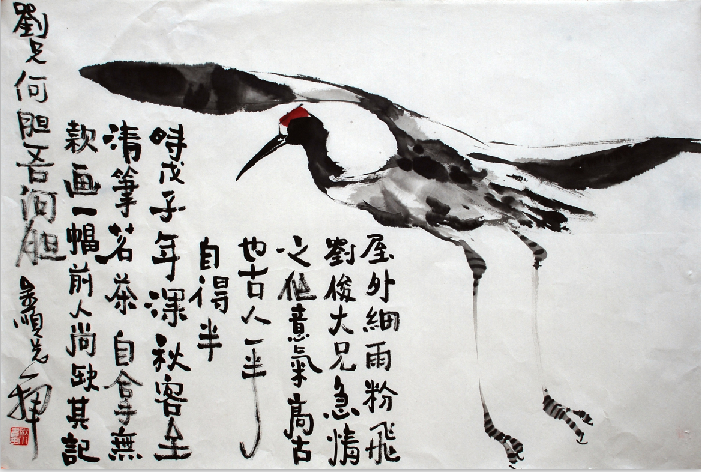 屋外細雨粉飛
劉俊大兄急情
之他意氣高古
也古人一半
自得半
時戊子年深秋客至
清筆茗茶自拿無
款画一幅前人尚缺其記
劉兄何胆吾何胆